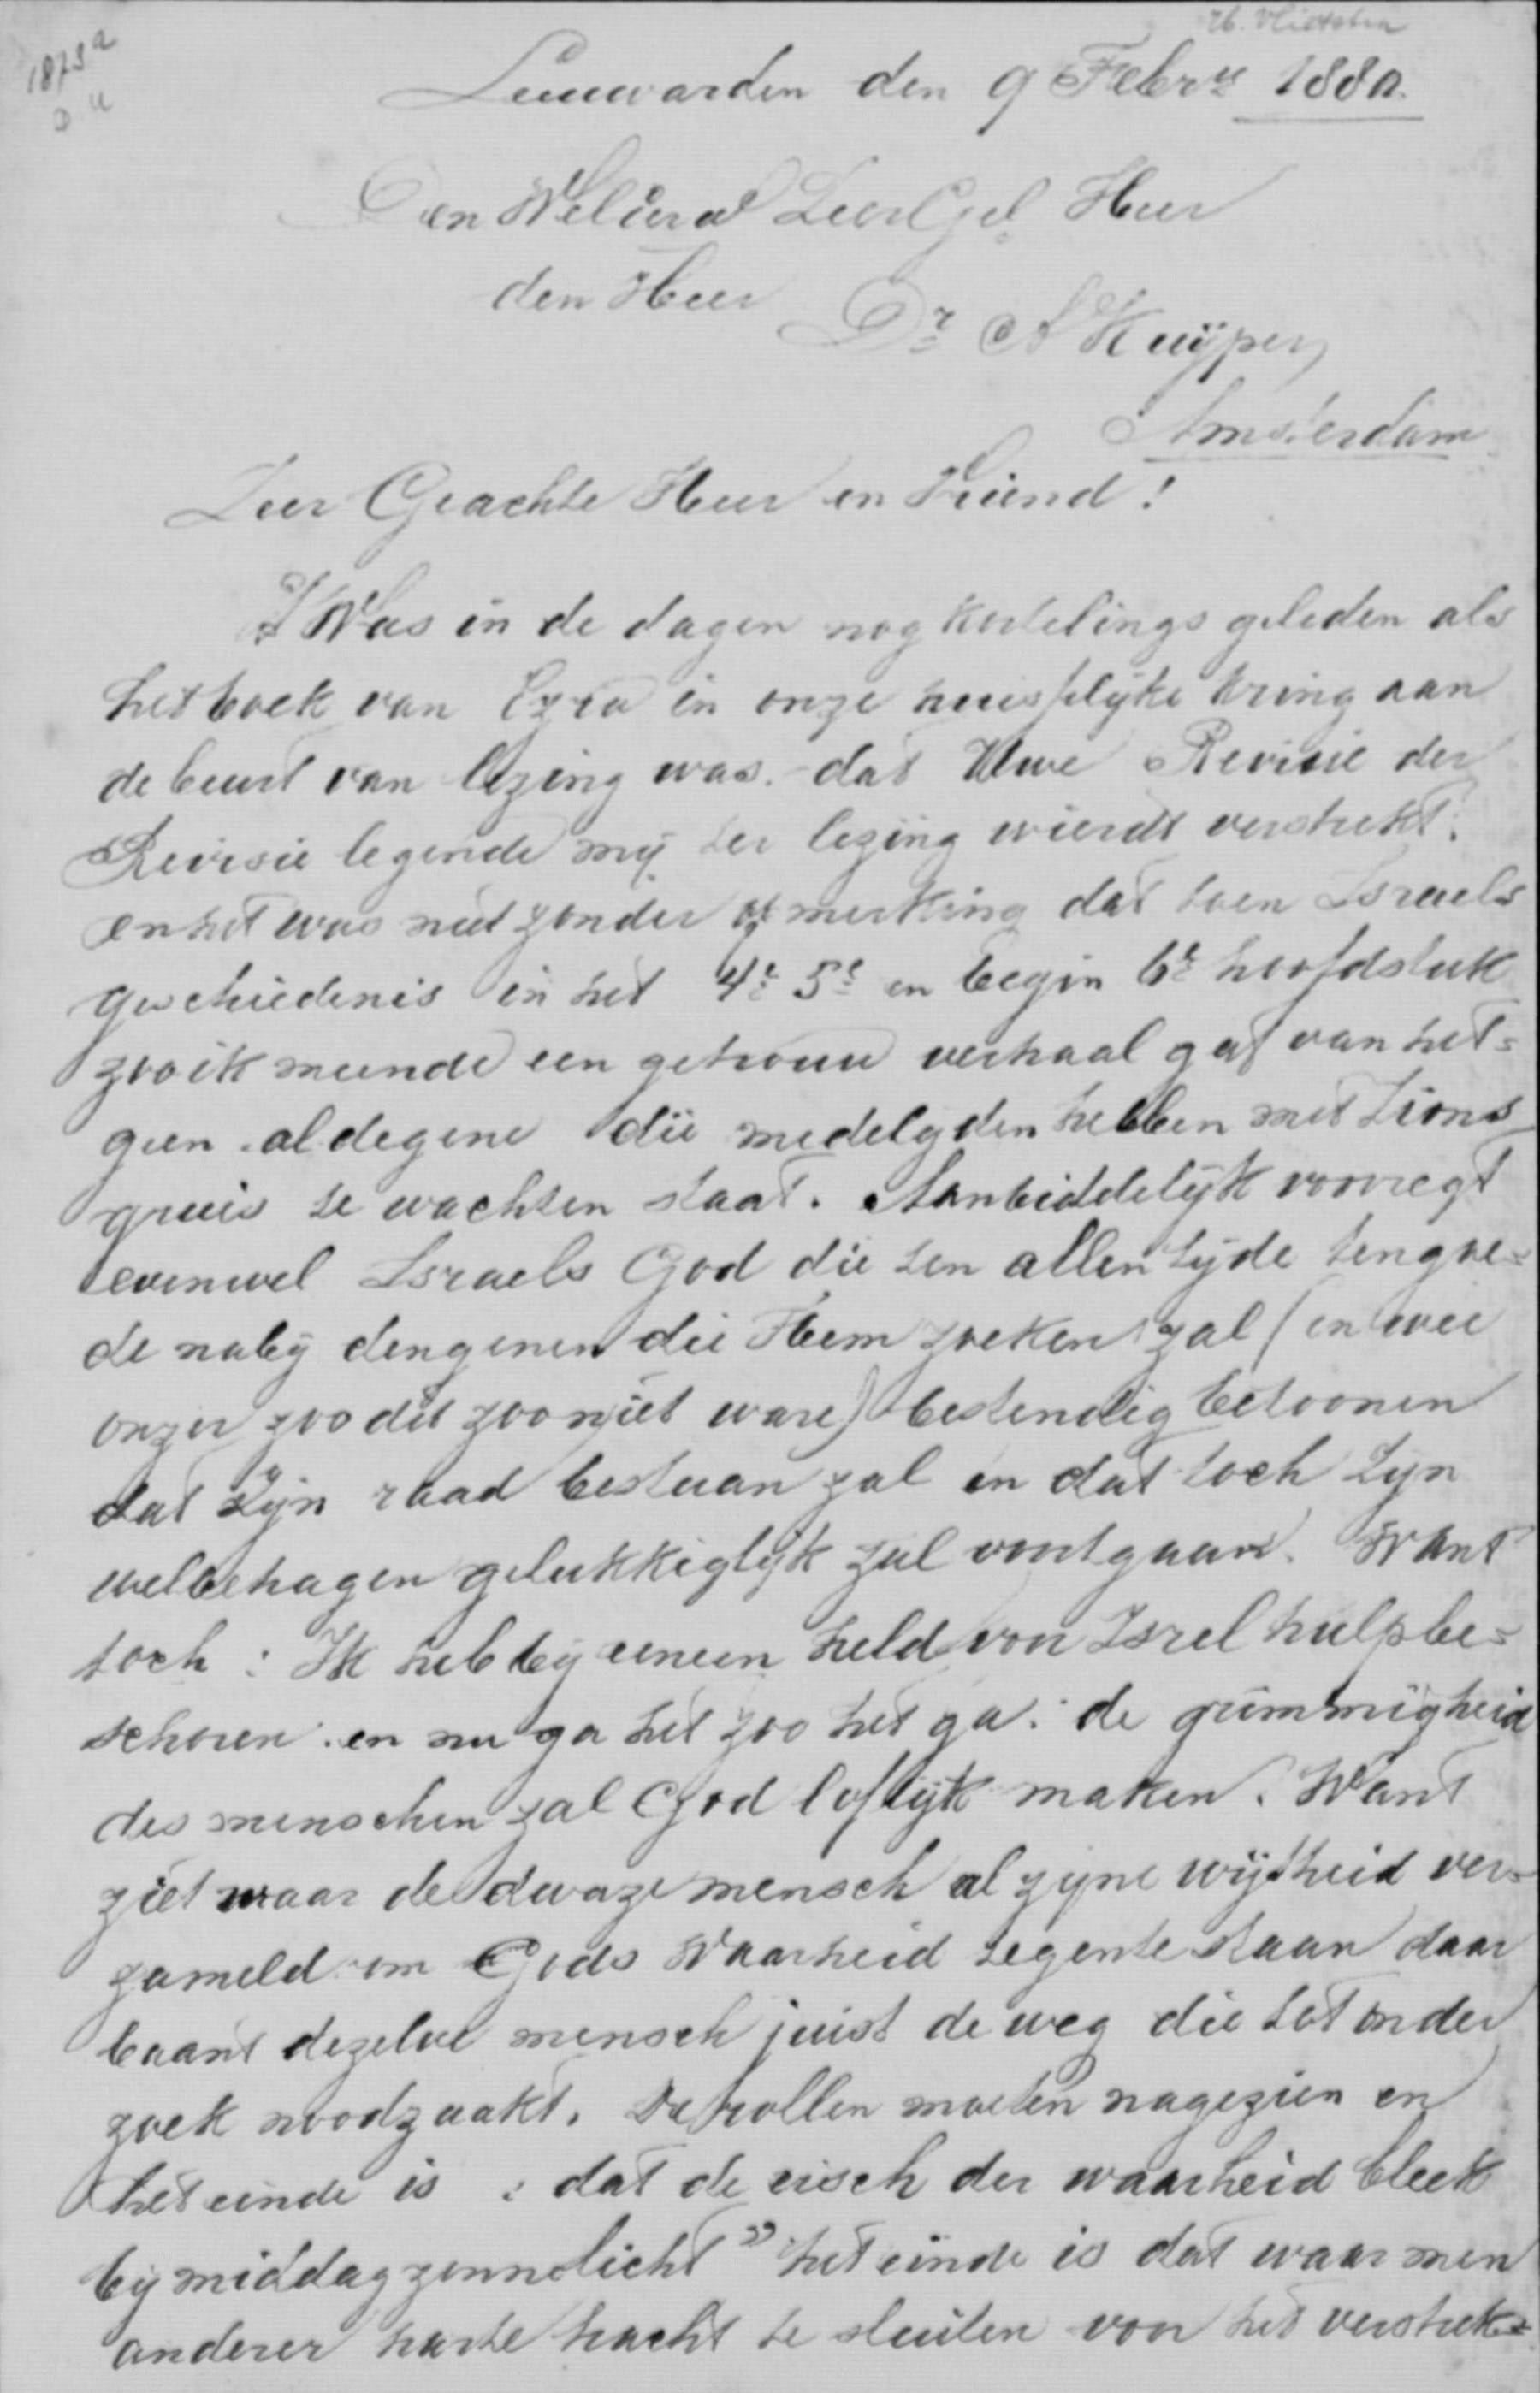 H. Vlietstra
1873a
Leeuwarden den 9 Febru 1880.
Den WelEerw ZeerGel Heer
den Heer
Dr A Kuijper
Amsterdam
Zeer Geachte Heer en Vriend!
't Was in de dagen nog kortelings geleden als
het boek van Ezra in onze huisselijke kring aan
de beurt van lezing was. dat Uwe Revisie der
Revisie legende mij ter lezing wierdt verstrekt.
en het was niet zonder opmerking dat toen Israels
geschiedenis in het 4e 5e en begin 6e hoofdstuk
zoo ik meende een getrouw verhaal gaf van het=
geen aldegene die medelyden hebben met Zions
gruis te wachten staat. Aanbiddelijk voorzegt
evenwel Israels God die ten allen tijde tengoe=
de naby dengenen die Hem zoeken zal (en wee
onzer zoo dit zoo niet ware) bestendig betoonen
dat Zijn raad bestaan zal en dat toch Zyn
welbehagen gelukkiglijk zal voortgaan. Want
toch: Ik heb by eenen held voor Isrel hulp be=
schoren. en nu ga het zoo het ga. de grimmigheid
des menschen zal God loflijk maken. Want
ziet waar de dwaze mensch al zyne wijsheid ver=
zameld om Gods Waarheid tegentestaan daar
baant dezelve mensch juist de weg die tot onder
zoek noodzaakt. De rollen moeten nagezien en
het einde is : dat de eisch der waarheid bleek
by middagzonnelicht" het einde is dat waar men
anderer harte tracht te sluiten voor het verstrek=